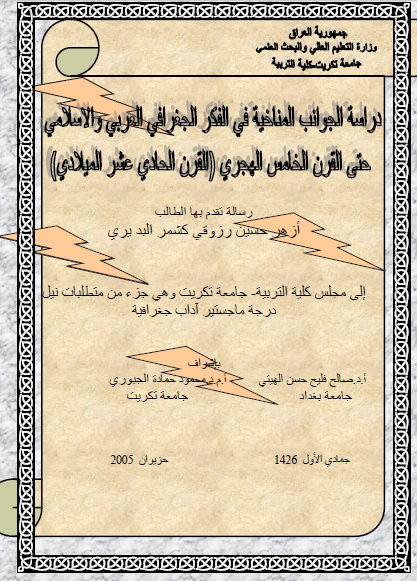 جمهورية العراق
وزارة التعليم العالي والبحث العلمي
جامعة تكريت-كلية التربية
دراسة الجوانب المناخية في الفكر الجغرافي العربي والاسلامي
حتى القرن الخامس الهجري (القرن الحادي عشر الميلادي)
رسالة تقدم بها الطالب
أزهر حسين رزوقي كشمر البديري
إلى مجلس كلية التربية- جامعة تكريت وهي جزء من متطلبات نيل
درجة ماجستير آداب جغرافية
بإشراف
أ.د.صالح فليح حسن الهيتي أ.م.د.محمود حمادة الجبوري
جامعة بغداد جامعة تكريت
جمادي الأول 1426 حزيران 2005